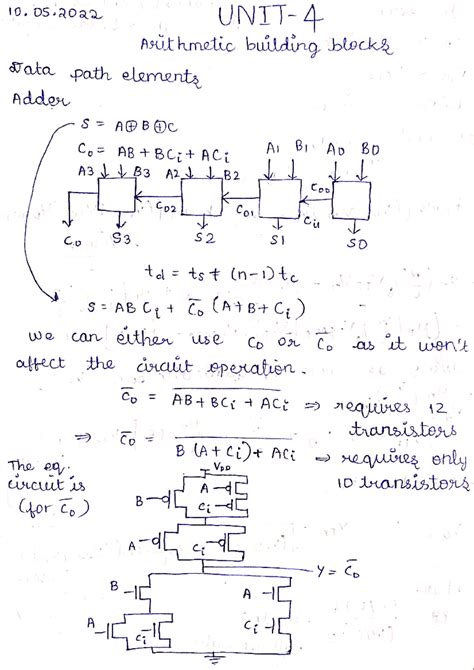 10.05.2022 UNIT-4
Arithmetic building blocks
Data path elements
Adder
S = A⊕B⊕C
C₀ = AB + BCi + ACi
A3 B3 A2 B2 A1 B1 A0 B0
C₀ C02 C01 C00 Ci1
S3 S2 S1 S0
td = ts + (n-1) tc
S = ABCi + C̅₀ (A+B+Ci)
we can either use C0 or C̅₀ as it won't
affect the circuit operation.
C̅₀ = \overline{AB + BCi + ACi} ⇒ requires 12
transistors
⇒ C̅₀ = \overline{B (A + Ci) + ACi} ⇒ requires only
10 transistors
The eq.
circuit is
(for C̅₀)
VDD
A
B
Ci
A
Ci
Y = C̅₀
B
A
A
Ci
Ci